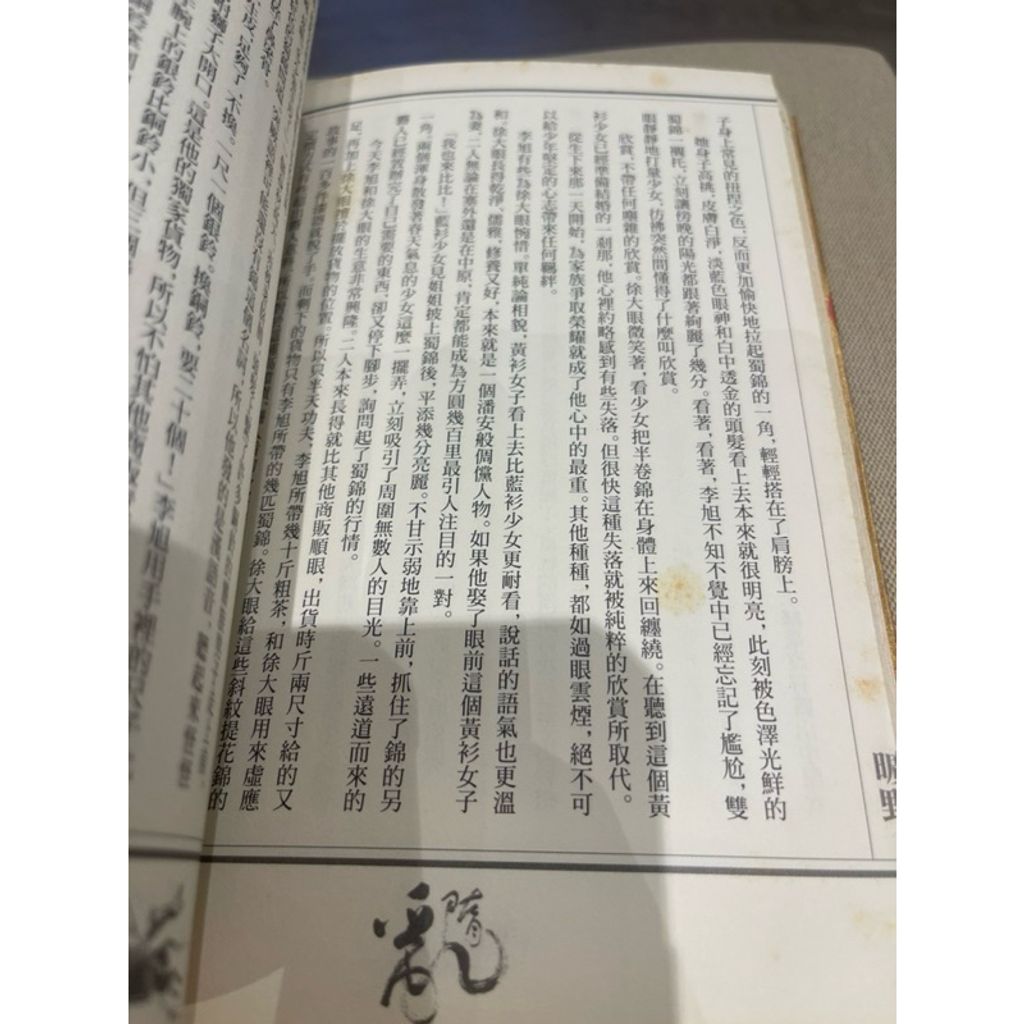 子身上常見的扭捏之色，反而更加愉快地拉起蜀錦的一角，輕輕搭在了肩膀上。
她身子高桃，皮膚白淨，淡藍色眼神和白中透金的頭髮看上去本來就很明亮，此刻被色澤光鮮的
蜀錦一襯托，立刻讓傍晚的陽光都跟著絢麗了幾分。看著，看著，李旭不知不覺中已經忘記了尷尬，雙
眼靜靜地打量少女，彷彿突然間懂得了什麼叫欣賞。
欣賞，不帶任何嘈雜的欣賞。徐大眼微笑著，看少女把半卷錦在身體上來回纏繞。在聽到這個黃
衫少女已經準備結婚的一剎那，他心裡約略感到有些失落。但很快這種失落就被純粹的欣賞所取代。
從生下來那一天開始，為家族爭取榮耀就成了他心中的最重。其他種種，都如過眼雲煙，絕不可
以給少年堅定的心志帶來任何羈絆。
李旭有些為徐大眼惋惜。單純論相貌，黃衫女子看上去比藍衫少女更耐看，說話的語氣也更溫
和。徐大眼長得乾淨、儒雅，修養又好，本來就是一個潘安般倜儻人物。如果他娶了眼前這個黃衫女子
為妻，二人無論在塞外還是在中原，肯定都能成為方圓幾百里最引人注目的一對。
「我也來比比！」藍衫少女見姐姐披上蜀錦後，平添幾分亮麗。不甘示弱地靠上前，抓住了錦的另
一角。兩個渾身散發著春天氣息的少女這麼一擺弄，立刻吸引了周圍無數人的目光。一些遠道而來的
牧人已經置辦完了自己需要的東西，卻又停下腳步，詢問起了蜀錦的行情。
今天李旭和徐大眼的生意非常興隆。二人本來長得就比其他商販順眼，出貨時斤兩尺寸給的又
足，再加上徐大眼
擺放貨物的位置。所以只半天功夫，李旭所帶幾十斤粗茶，和徐大眼用來虛應
故事的一百多件
手，而剩下的貨物只有李旭所帶的幾匹蜀錦。徐大眼給這些斜紋提花錦的
不換。一尺一個銀鈴。換銅鈴，要二十個！」李旭用手裡的
大開口。這是他的獨家貨物，所以不怕其他商販
手腕上的銀鈴比銅鈴小，但三個
曠野
隋亂